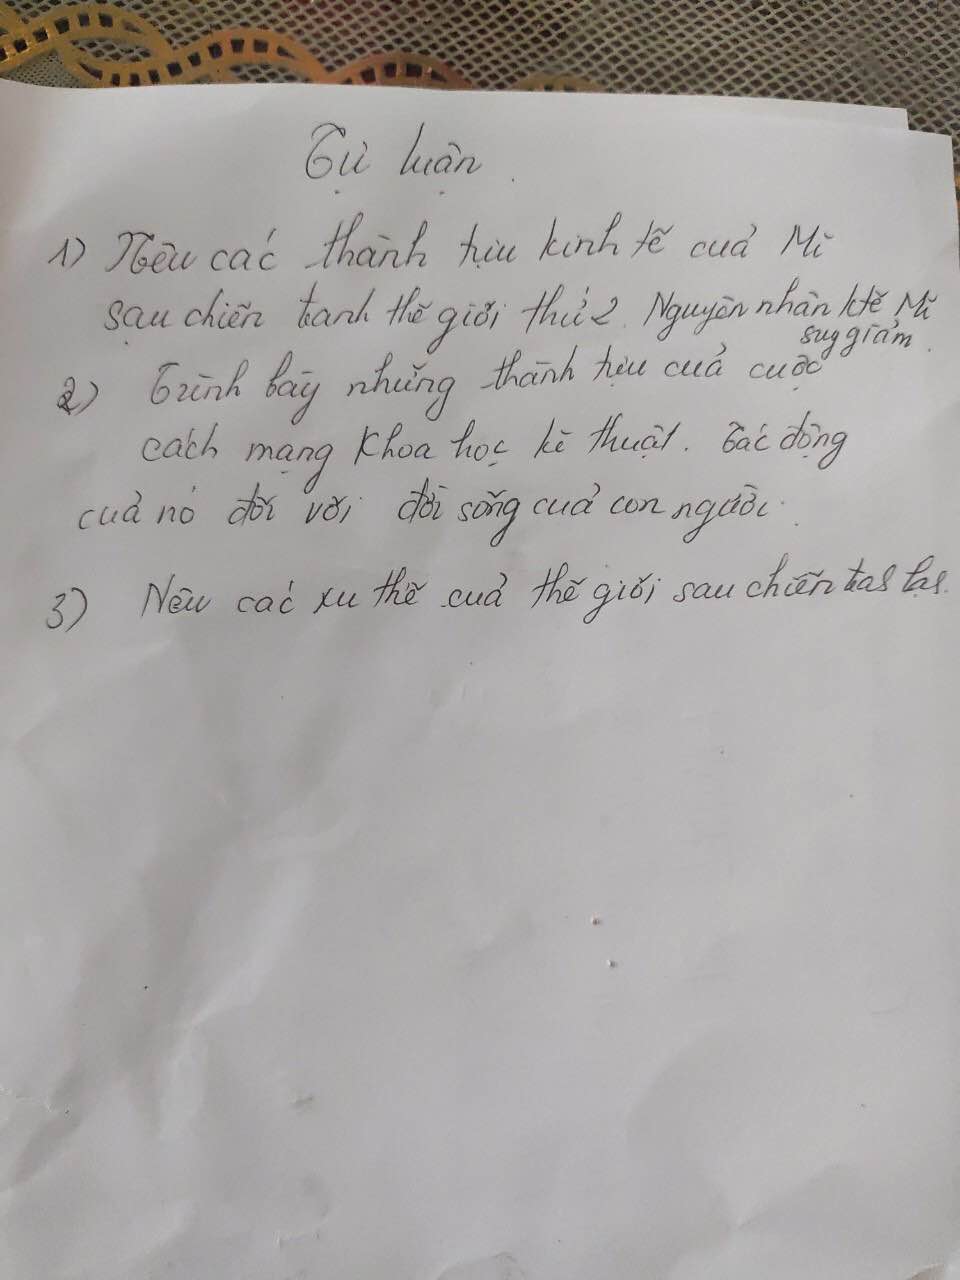 Tự luận.
1) Nêu các thành tựu kinh tế của Mĩ
sau chiến tranh thế giới thứ 2. Nguyên nhân ktế Mĩ
suy giảm.
2) Trình bày những thành tựu của cuộc
cách mạng khoa học kĩ thuật. Tác động
của nó đối với đời sống của con người.
3) Nêu các xu thế của thế giới sau chiến